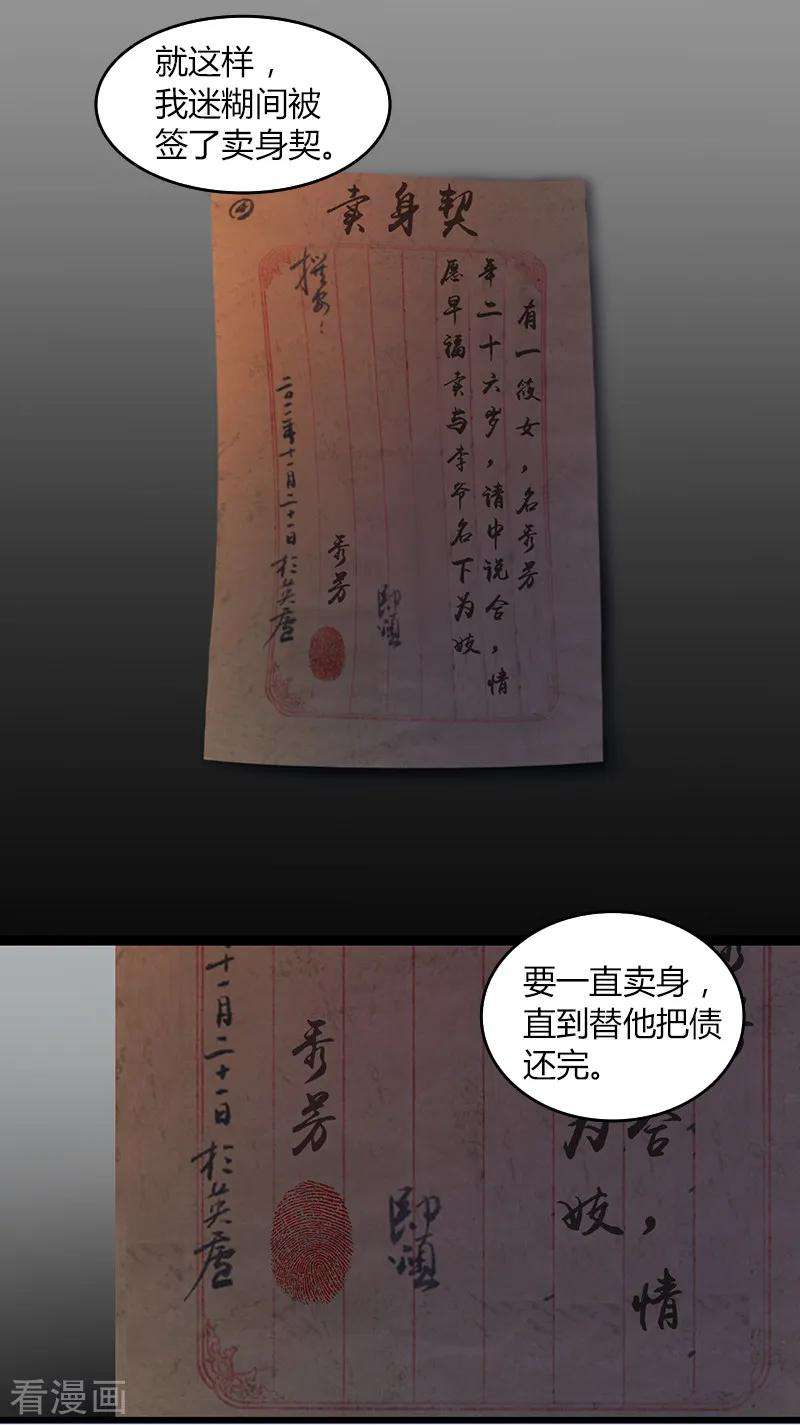 就这样，
我迷糊间被
签了卖身契。
卖身契
有一筱女，名秀芳
年二十六岁，请中说合，情
愿早福卖与李爷名下为妓
即颂
秀芳
二〇一一年十一月二十一日于英庐
要一直卖身，
直到替他把债
还完。
十一月二十一日于英庐
秀芳
即颂
为妓
合，情
看漫画